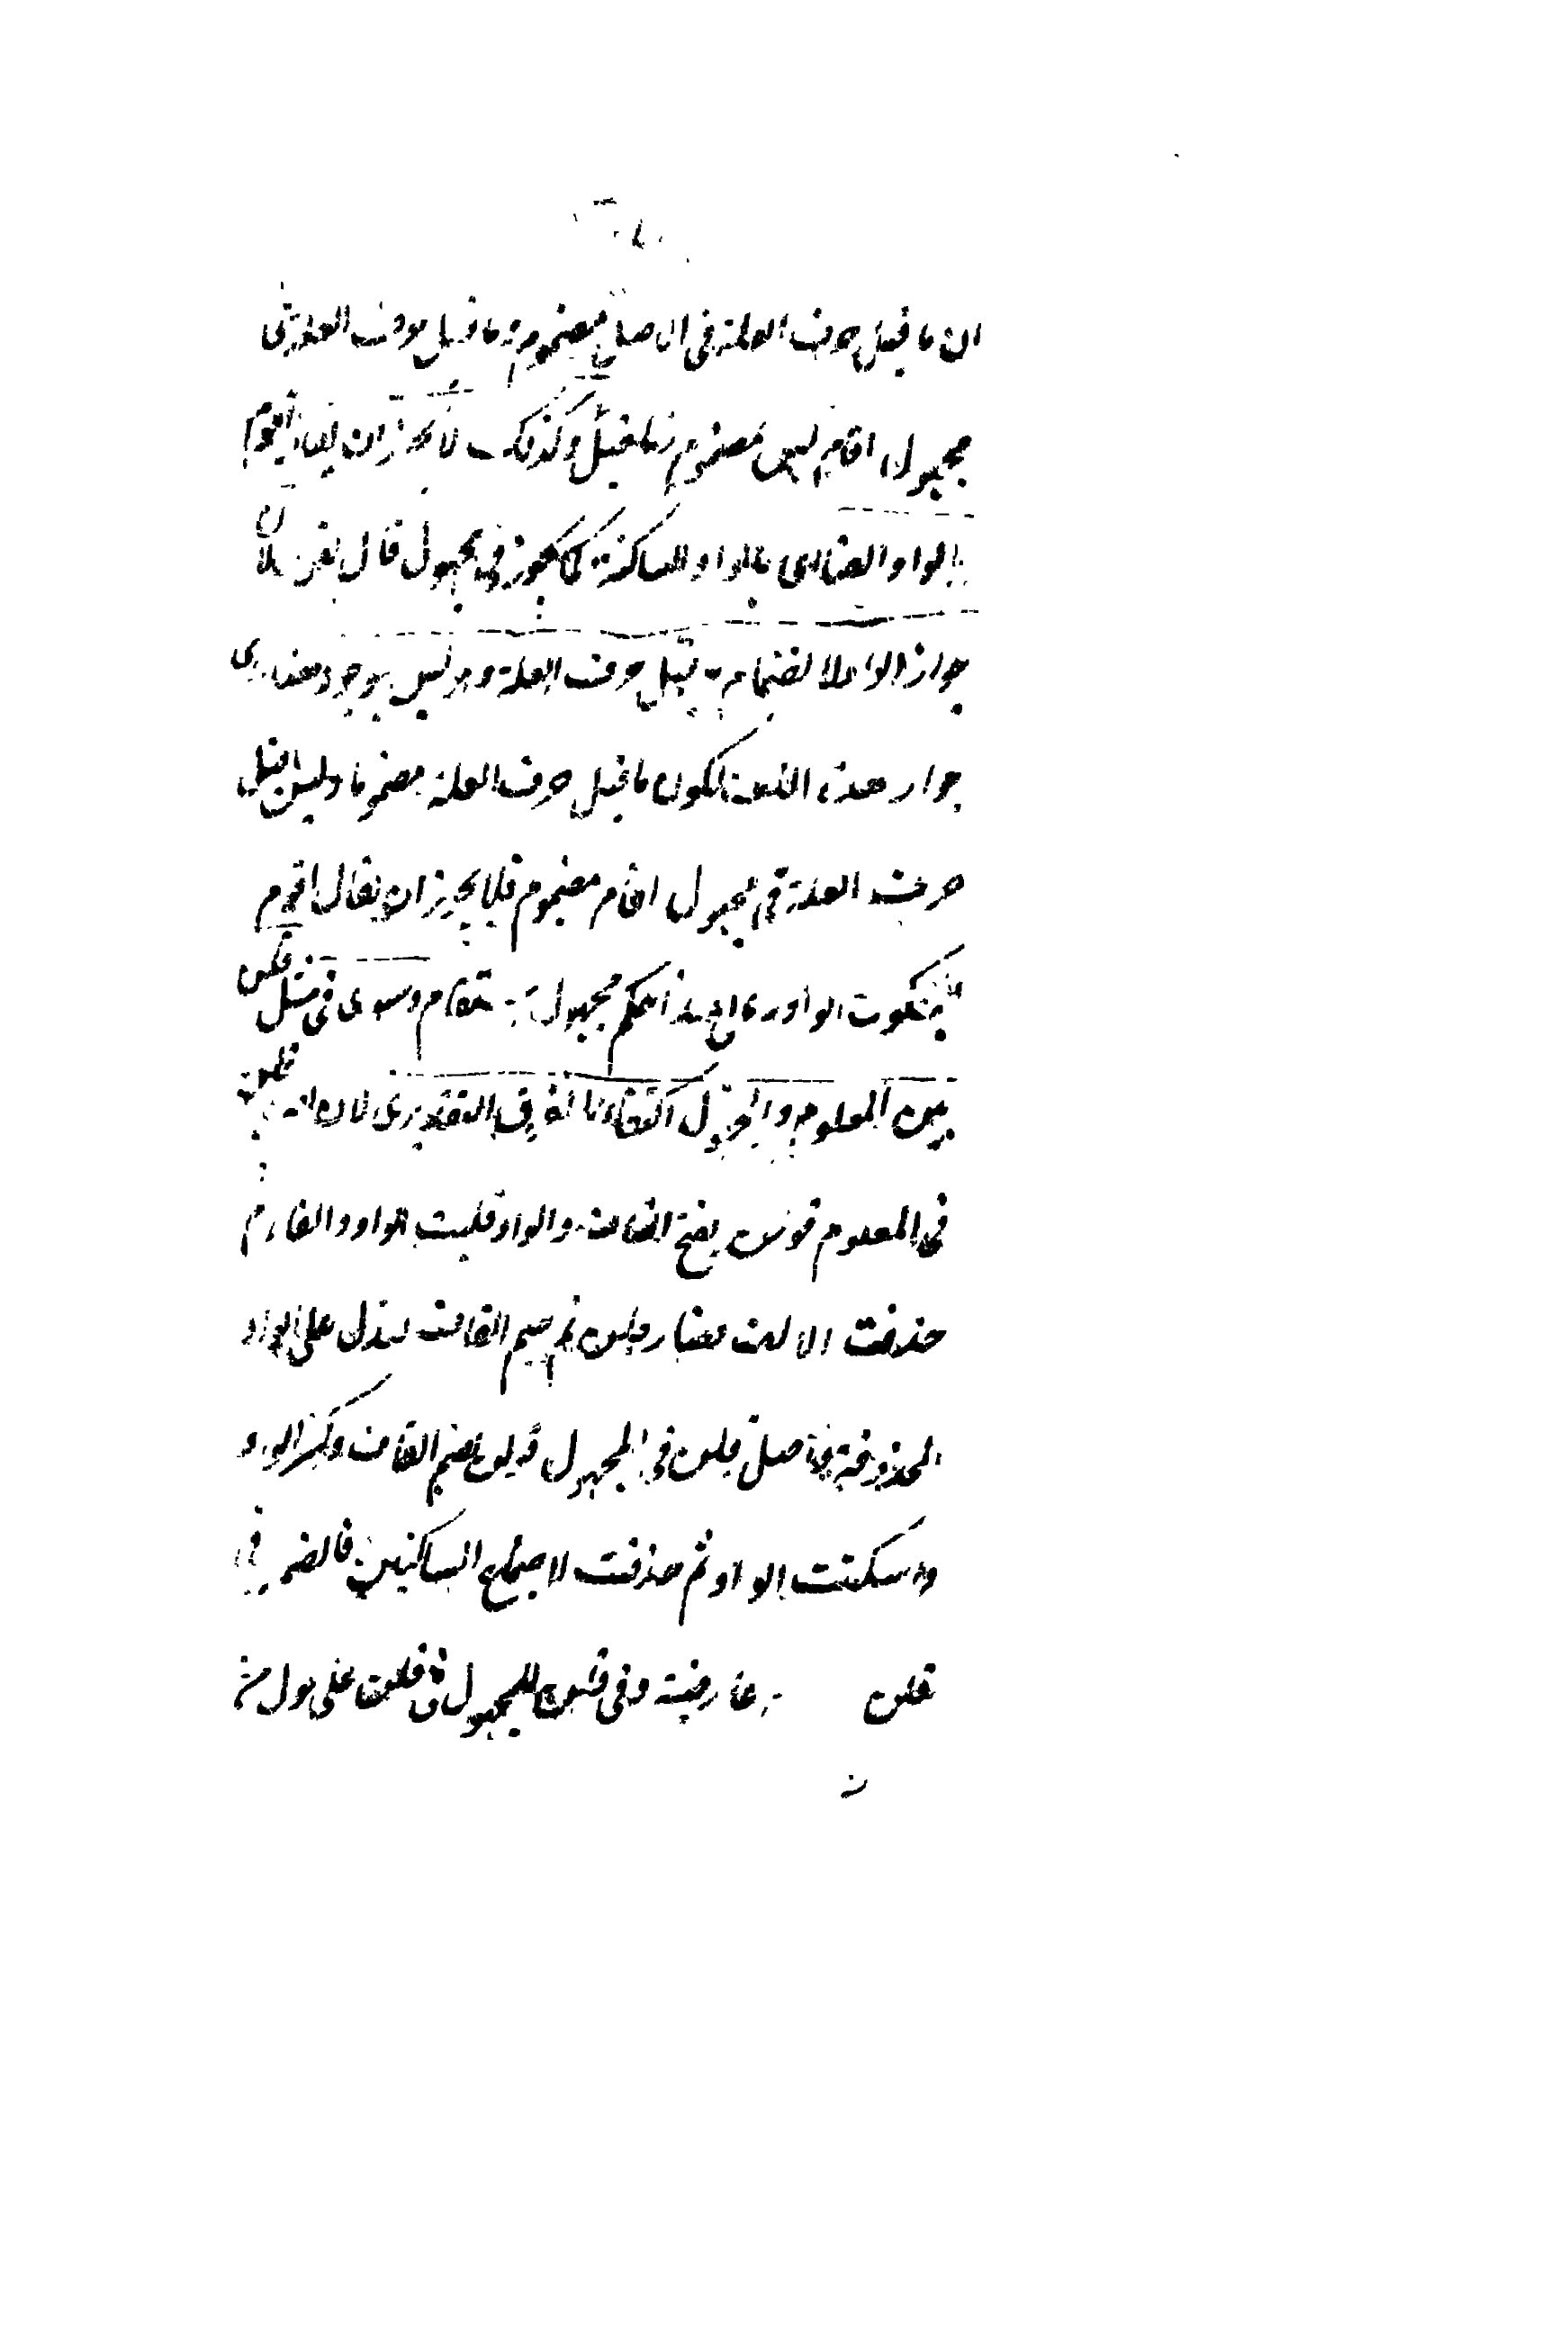 ان ما قبل حرف العلة فى الاصل مضموم وما قبل حرف العلة فى
مجهول اقام ليس بمضموم ما قبل وكذلك لا يجوز ان يقال اقوم
بالواو الخالص بالواو الساكنة كما يجوز فى مجهول قال يعنى لان
جواز الواو لانضمام ما قبل حرف العلة وهو ليس بموجود يعنى
جواز هذه اللغة لكون ما قبل حرف العلة مضموما وليس ما قبل
حرف العلة فى مجهول اقام مضموم فلا يجوز ان يقال اقوم
بسكون الواو مجهول اقام وسوى فى مثل قلن
بين المعلوم والمجهول اكتفاء بالفرق التقديرى لان اصله
فى المعلوم قولن بفتح القاف والواو قلبت الواو الفا ثم
حذفت الالف فصار قلن ثم ضم القاف ليدل على الواو
المحذوفة واصل قلن فى المجهول قولن بضم القاف وكسر الواو
واسكنت الواو ثم حذفت لاجتماع الساكنين فالضمة فى
قلن عارضية وفى قلن للمجهول